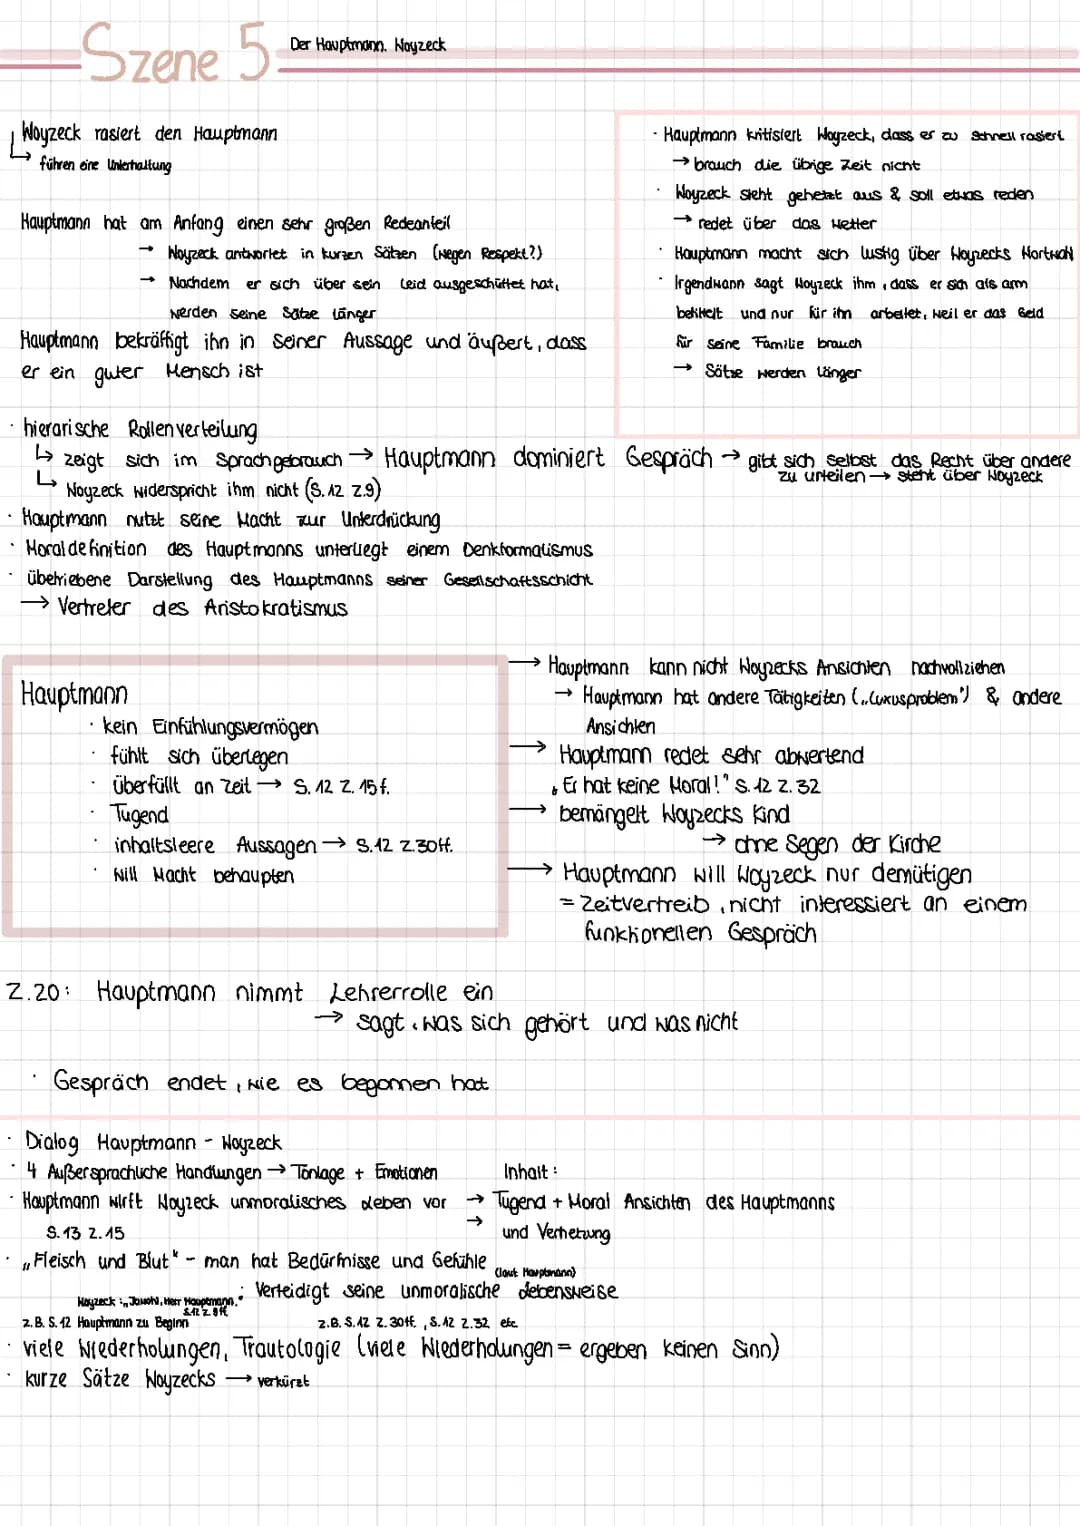 Szene 5
Der Hauptmann. Woyzeck
Woyzeck rasiert den Hauptmann
↳ führen eine Unterhaltung
Hauptmann hat am Anfang einen sehr großen Redeanteil
→ Woyzeck antwortet in kurzen Sätzen (wegen Respekt?)
→ Nachdem er sich über sein Leid ausgeschüttet hat,
werden seine Sätze länger
Hauptmann bekräftigt ihn in seiner Aussage und äußert, dass
er ein guter Mensch ist
· Hauptmann kritisiert Woyzeck, dass er zu schnell rasiert
→ brauch die übrige Zeit nicht
· Woyzeck sieht gehetzt aus & soll etwas reden
→ redet über das Wetter
· Hauptmann macht sich lustig über Woyzecks Wortwahl
· Irgendwann sagt Woyzeck ihm, dass er sich als arm
betitelt und nur für ihn arbeitet, weil er das Geld
für seine Familie brauch
→ Sätze werden länger
· hierarische Rollenverteilung
↳ zeigt sich im Sprachgebrauch → Hauptmann dominiert Gespräch → gibt sich selbst das Recht über andere
zu urteilen → steht über Woyzeck
↳ Woyzeck widerspricht ihm nicht (S. 12 Z.9)
· Hauptmann nutzt seine Macht zur Unterdrückung
· Moraldefinition des Hauptmanns unterliegt einem Denkformalismus
· übetriebene Darstellung des Hauptmanns seiner Gesellschaftsschicht
→ Vertreter des Aristokratismus
Hauptmann
· kein Einfühlungsvermögen
· fühlt sich überlegen
· überfüllt an Zeit → S. 12 Z. 15 f.
· Tugend
· inhaltsleere Aussagen → S.12 Z.30ff.
· will Macht behaupten
→ Hauptmann kann nicht Woyzecks Ansichten nachvollziehen
→ Hauptmann hat andere Tätigkeiten („Luxusproblem") & andere
Ansichten
→ Hauptmann redet sehr abwertend
„Er hat keine Moral!" S. 12 Z. 32
→ bemängelt Woyzecks Kind
→ ohne Segen der Kirche
→ Hauptmann will Woyzeck nur demütigen
= Zeitvertreib, nicht interessiert an einem
funktionellen Gespräch
Z.20: Hauptmann nimmt Lehrerrolle ein
→ sagt, was sich gehört und was nicht
· Gespräch endet, wie es begonnen hat
· Dialog Hauptmann - Woyzeck
· 4 Außersprachliche Handlungen → Tonlage + Emotionen
Inhalt:
· Hauptmann wirft Woyzeck unmoralisches Leben vor
→ Tugend + Moral Ansichten des Hauptmanns
S. 13 Z. 15
→ und Verhetzung
· „Fleisch und Blut" - man hat Bedürfnisse und Gefühle
(laut Hauptmann)
: Verteidigt seine unmoralische Lebensweise
Woyzeck: „Jawohl, Herr Hauptmann."
S.12 Z. 9ff.
z. B. S. 12 Hauptmann zu Beginn
z.B. S. 12 Z. 30ff., S. 12 Z. 32, etc.
· viele Wiederholungen, Trautologie (viele Wiederholungen = ergeben keinen Sinn)
· kurze Sätze Woyzecks → verkürzt